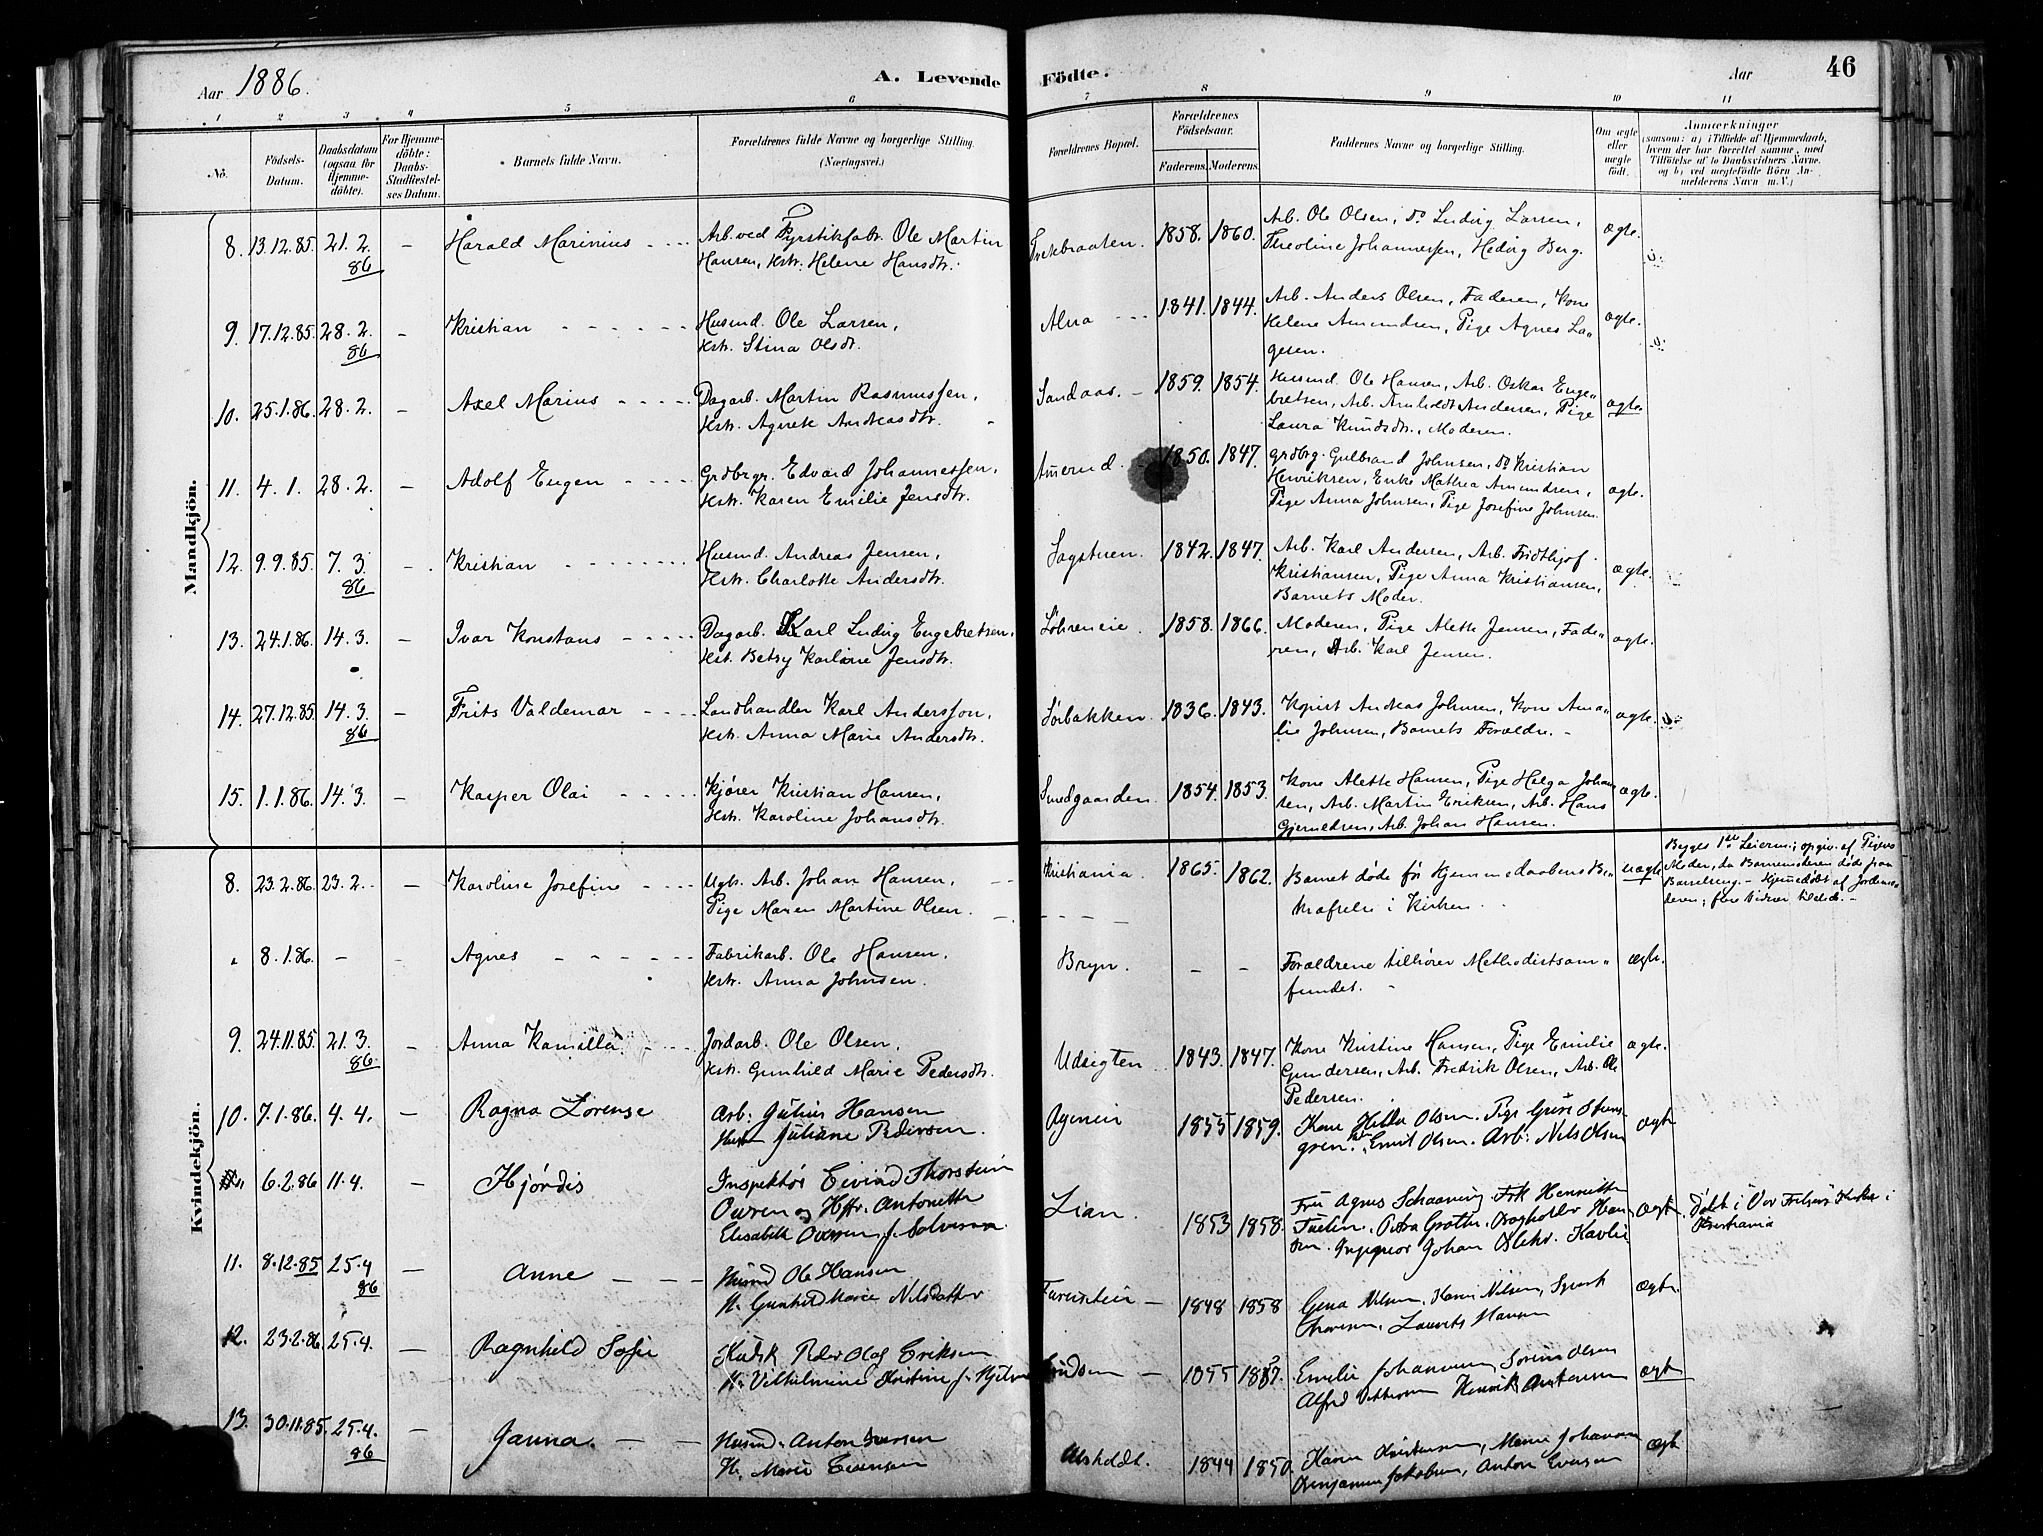 Aar 1886.
A. Levende Födte.
Aar
46
1 2 3 4 5 6 7 8 9 10 11
No.
Födsels-Datum.
Daabsdatum (ogsaa for Hjemme-döbte).
For Hjemme-döbte: Daabs-Stadfæstel-ses Datum.
Barnets fulde Navn.
Forældrenes fulde Navne og borgerlige Stilling. (Næringsvei.)
Forældrenes Bopæl.
Forældrenes Födselsaar.
Faderens. Moderens.
Faddernes Navne og borgerlige Stilling.
Om ægte eller uægte födt.
Anmærkninger
(saasom: a) i Tilfælde af Hjemmedaab, hvem der har forrettet samme, med Tilföielse af to Daabsvidners Navne, og b) ved uægtefödte Börn An-melderens Navn m. V.)
Mandkjön.
8. 13.12.85. 21.2. 86 - Harald Marinius - - - Arb. ved Fyrstikfabr. Ole Martin
Hansen, Hstr. Helene Hansdtr.
1858. 1860. Arb. Ole Olsen, Do Ludvig Larsen,
Theoline Johannessen, Hedvig Berg. ægte.
9. 17.12.85. 28.2. 86 - Kristian - - - Husmd. Ole Larsen,
Hstr. Stina Olsdtr.
Alna - - - 1841. 1844. Arb. Anders Olsen, Faderen, Kone
Helene Amundsen, Pige Agnes La-
gesen. ægte.
10. 25.1.86. 28.2. - Axel Marius - - - Dagarb. Martin Rasmussen,
Hstr. Agnete Andreasdtr.
Sandaas. - 1859. 1854. Husmd. Ole Hansen, Arb. Oskar Enge-
bretsen, Arb. Arnholdt Andersen, Pige
Laura Knudsdtr., Moderen. ægte.
11. 4.1. 28.2. - Adolf Eugen - - - Grdbrgr. Edvard Johannessen,
Hstr. Karen Emilie Jensdtr.
Amerud. 1850. 1847. Grdbrg. Gulbrand Johnsen, Do Kristian
Henriksen, Enke Mathea Amundsen,
Pige Anna Johnsen, Pige Josefine Johnsen. ægte.
12. 9.9.85. 7.3. 86 - Kristian - - - Husmd. Andreas Jensen,
Hstr. Charlotte Andersdtr.
Sagstuen. 1842. 1847. Arb. Karl Andersen, Arb. Fridthjof
Kristiansen, Pige Anna Kristiansen,
Barnets Moder. ægte.
13. 24.1.86. 14.3. - Ivar Konstans - - - Dagarb. Karl Ludvig Engebretsen,
Hst. Betsy Karline Jensdtr.
Løhreneie. 1858. 1866. Moderen, Pige Alette Jensen, Fade-
ren, Arb. Karl Jensen. ægte.
14. 27.12.85. 14.3. 86 - Frits Valdemar - - - Landhandler Karl Anderson,
Hst. Anna Marie Andersdtr.
Sørbakken. 1836. 1843. Andreas Johnsen, Kone Ama-
lie Johnsen, Barnets Forældre. - ægte.
15. 1.1.86. 14.3. - Kasper Olai - - - Kjører Kristian Hansen,
Hst. Karoline Johansdtr.
Smedgaarden. 1854. 1853. Kone Alette Hansen, Pige Helga Johan-
sen, Arb. Martin Eriksen, Arb. Hans
Arb. Johan Hansen. ægte.
Kvindekjön.
8. 23.2.86. 23.2. - Karoline Josefine - - - Ugk. Arb. Johan Hansen,
Pige Maren Martine Olsen.
Kristiania. 1865. 1862. Barnet døde før Hjemmedaabens Be-
kræftelse i Kirken. uægte
Begges 1ste Leierm.; opgiv. af Pigens
Moder, da Barnemoderen døde paa
Barselseng. - Hjemmedøbt af Jordemo-
deren; flere Vidner tilstede. -
" 8.1.86. - - Agnes - - - Fabrikarb. Ole Hansen,
Hstr. Anna Johnsen.
Bryn. - - Forældrene tilhører Methodistsam-
fundet. - ægte.
9. 24.11.85. 21.3. 86 - Anna Kamilla - - Jordarb. Ole Olsen,
Hst. Gunhild Marie Pedersdtr.
Udsigten 1843. 1847. Kone Kristine Hansen, Pige Emilie
Gundersen, Arb. Fredrik Olsen, Arb. Ole
Pedersen. ægte.
10. 7.1.86. 4.4. - Ragna Lorense Arb. Julius Hansen
Hustr Juliane Pedersen.
1855 1859. Kone Helda Olsen. Pige
Emil Olsen. Arb. Nils Olsen ægte
" 6.2.86 11.4. - Hjørdis Inspektør Eivind Thorstein
Owren og Hstr. Antonette
Elisabeth Owren f. Halvorsen
Lian. 1853 1858. Fru Agnes Schaaning. Frk Henriette
Tuelin, Petra Grøtte, Han-
sen. Ingeniør Johan ægte. Døbt i Vor Frelsers Kirke i
Kristiania
11. 8.12.85 25.4 86 - Anne - - - Husmd Ole Hansen
H. Gunhild Marie Nilsdatter
Furustein - 1848 1858 Gina Nilsen, Karen Nilsen,
Laurits Hansen ægte.
12. 23.2.86 25.4. - Ragnhild Sofie Kudsk Peder Olaf Eriksen
H. Vilhelmine Kristine f.
- 1855 1857. Emilie Johannesen, Olsen
Alfred Henrik Antonsen ægte
13. 30.11.85. 25.4. 86 - Janna. - - Husmd. Anton Iversen
H. Marie Evensen
1844 1850. Karen Kristensen, Marie Johansen
Benjamin Jakobsen, Anton Evensen ægte